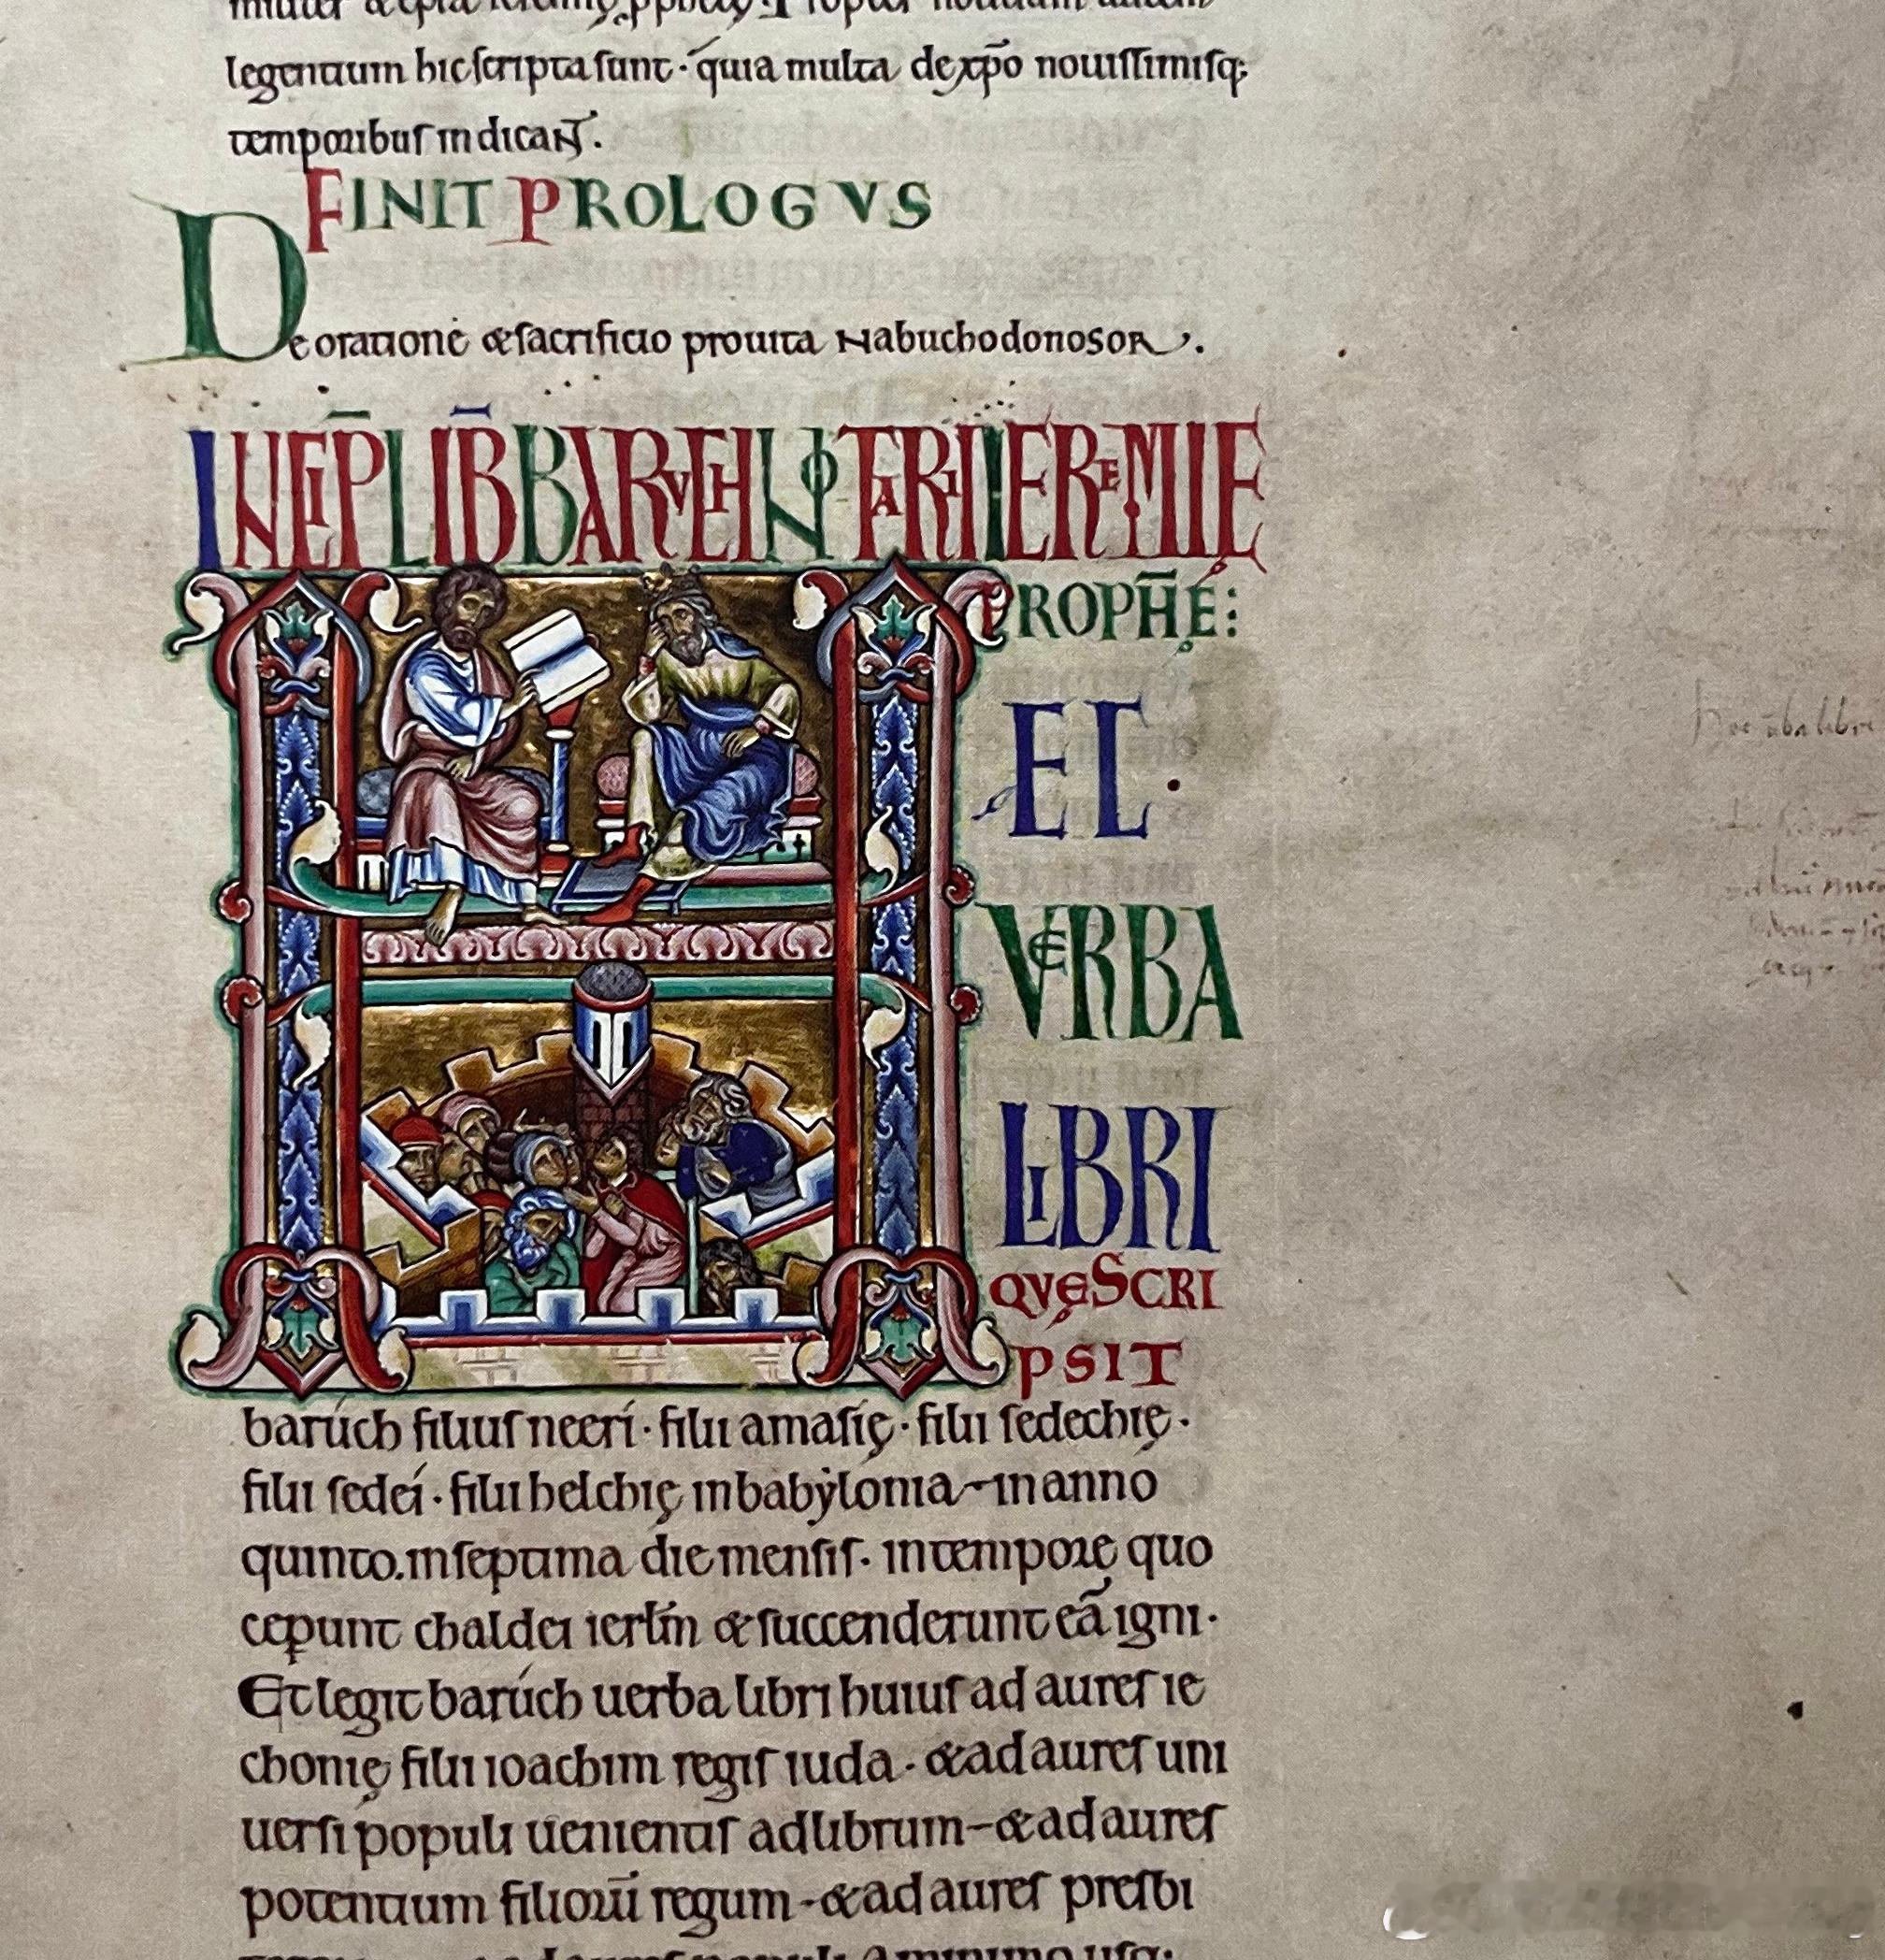 legentium hic scripta sunt · quia multa de xp̄o nouissimisq;
temporibus indicaNT.
FINIT PROLOGVS
De oratione & sacrificio pro uita Nabuchodonosor.
INCIP̄ LIB̄ BARVCH NOTARII IEREMIE
PROPH̄Ę:
ET ·
VERBA
LIBRI
QVĘ SCRI
PSIT
baruch filius neeri · filii amasię · filii sedechię ·
filii sedei · filii helchię in babẏlonia - in anno
quinto. in septima die mensis. in tempore quo
ceꝑunt chaldei ierl̄m & succenderunt eā igni ·
Et legit baruch uerba libri huius ad aures ie
chonię filii ioachim regis iuda · & ad aures uni
uersi populi uenientis ad librum - & ad aures
potentium filioꝛū regum - & ad aures presbi